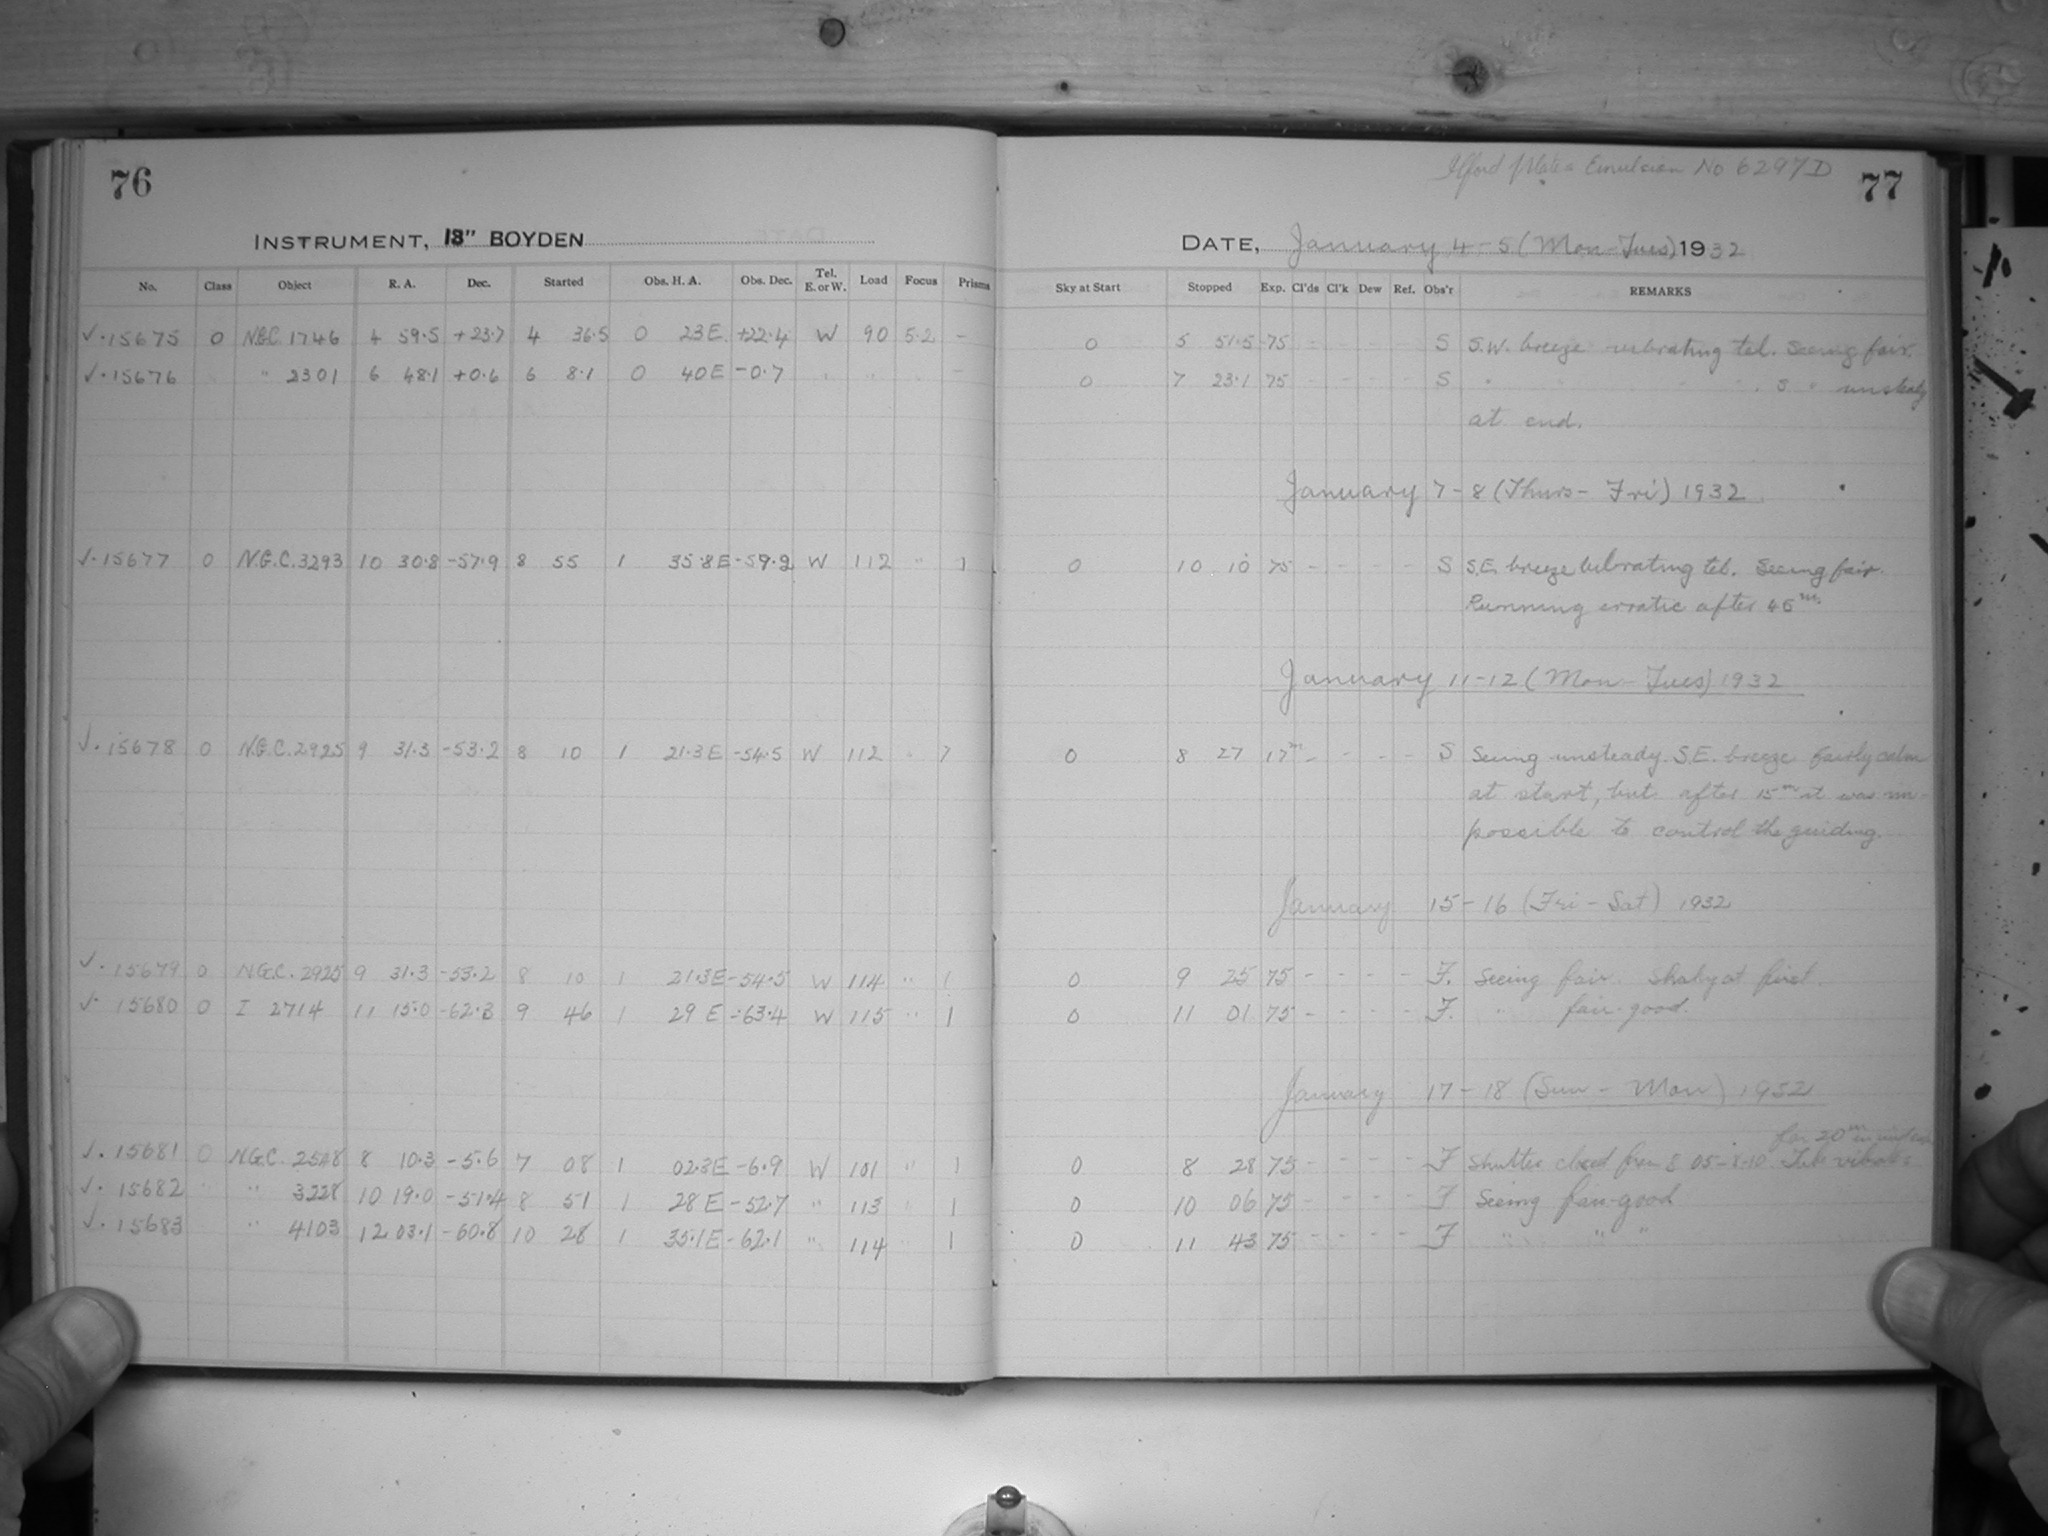 76
INSTRUMENT, 13" BOYDEN
No. Class Object R. A. Dec. Started Obs. H. A. Obs. Dec. Tel. E. or W. Load Focus Prisms
√·15675 0 N.G.C. 1746 4 59.5 +23.7 4 36.5 0 23E +22.4 W 90 5.2 -
√·15676 " 2301 6 48.1 +0.6 6 8.1 0 40E -0.7 " " -
√·15677 0 N.G.C. 3293 10 30.8 -57.9 8 55 1 35.8E -59.2 W 112 " 1
√·15678 0 N.G.C. 2925 9 31.3 -53.2 8 10 1 21.3E -54.5 W 112 "
√·15679 0 N.G.C. 2925 9 31.3 -53.2 8 10 1 21.3E -54.5 W 114 " 1
√· 15680 0 I 2714 11 15.0 -62.3 9 46 1 29 E -63.4 W 115 " 1
√· 15681 0 N.G.C. 2548 8 10.3 -5.6 7 08 1 02.3E -6.9 W 101 " 1
√· 15682 " " 3228 10 19.0 -51.4 8 51 1 28 E -52.7 " 113 " 1
√· 15683 " 4103 12 03.1 -60.8 10 28 1 35.1E -62.1 " 114 1
Ilford plates Emulsion No 6297D
77
DATE, January 4-5 (Mon-Tues) 1932
Sky at Start Stopped Exp. Cl'ds Cl'k Dew Ref. Obs'r REMARKS
0 5 51.5 75 - - - - S S.W. breeze vibrating tel. Seeing fair.
0 7 23.1 75 - - - - S " " " " S " unsteady
at end.
January 7-8 (Thurs-Fri) 1932
0 10 10 75 - - - - S S.E. breeze vibrating tel. Seeing fair.
Running erratic after 45m.
January 11-12 (Mon-Tues) 1932
0 8 27 17m - - - - S Seeing unsteady. S.E. breeze fairly calm
at start, but after 15m it was im-
possible to control the guiding.
January 15-16 (Fri-Sat) 1932
0 9 25 75 - - - - F. Seeing fair. Shaky at first.
0 11 01 75 - - - - F. " fair-good.
January 17-18 (Sun - Mon) 1932
for 20m
0 8 28 75 - - - - F Shutter closed from 8 05-8.10. Tel. vibrates
0 10 06 75 - - - - F Seeing fair-good
0 11 43 75 - - - - F " " "